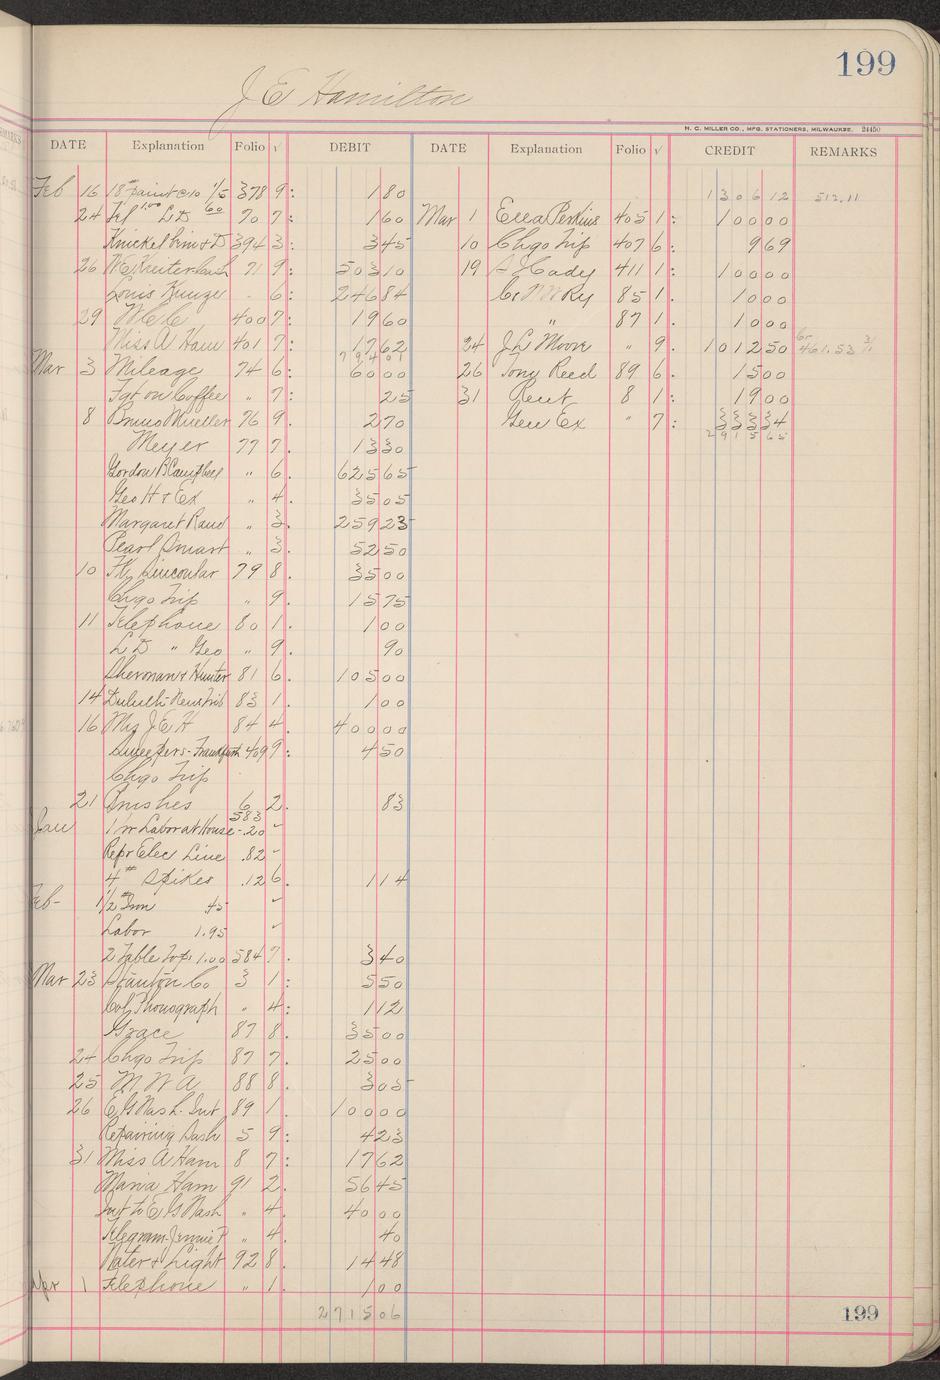 199
J E Hamilton
H. C. MILLER CO., MFG. STATIONERS, MILWAUKEE. 24450
DATE Explanation Folio √ DEBIT DATE Explanation Folio √ CREDIT REMARKS
Feb 16 18# paint @10 1/5 378 9: 1 80
1306 12 512.11
24 Tel 1.00 LD 60 70 7: 1 60
Mar 1 Ella Perkins 405 1: 100 00
Knickelbein & D 394 3: 3 45
10 Chgo Trip 407 6: 9 69
26 71 9: 503 10
19 S Cady 411 1: 100 00
Louis Kunze " 6: 246 84
C & N W Ry 85 1. 10 00
29 400 7: 19 60
" 87 1. 10 00
Miss A Ham 401 7: 17 62
794 01
24 J L Moore " 9. 1012 50 461.53
Mar 3 Mileage 74 6: 60 00
26 Tony Reed 89 6. 15 00
Fgt on Coffee " 7: 25
31 Rent 8 1: 19 00
8 Bruno Mueller 76 9. 2 70
Gen Ex " 7: 333 34
2915 65
Meyer 77 7. 13 30
Gordon B Campbell " 6. 625 65
Geo H & Ex " 4. 35 05
Margaret Rand " 3. 259 23
Pearl Smart " 3. 52 50
10 79 8. 35 00
Chgo Trip " 9. 15 75
11 Telephone 80 1. 1 00
L D " Geo " 9. 90
Sherman & Hunter 81 6. 105 00
14 Duluth News Trib 83 1. 1 00
16 Mrs J E H 84 4. 400 00
Sweepers - Frankfurth 409 9: 4 50
Chgo Trip
21 Brushes 6 2. 83
583
Jan 1 hr Labor at House - .20 ✓
Repr Elec Line .82 ✓
4# Spikes .12 6. 1 14
Feb - 1 1/2# Iron 45 ✓
Labor 1.95 ✓
2 Table Tops 1.00 584 7. 3 40
Mar 23 Stanton Co 3 1: 5 50
Col Phonograph " 4: 1 12
Grace 87 8. 35 00
24 Chgo Trip 87 7. 25 00
25 M. W A 88 8. 3 05
26 E G Nash. Int 89 1. 100 00
Repairing Sash 5 9: 4 23
31 Miss A Ham 8 7: 17 62
Maria Ham 91 2. 56 45
Int to E G Nash " 4. 40 00
Telegram - Jennie P " 4. 40
Water & Light 92 8. 14 48
Apr 1 Telephone " 1. 1 00
2715 06
199